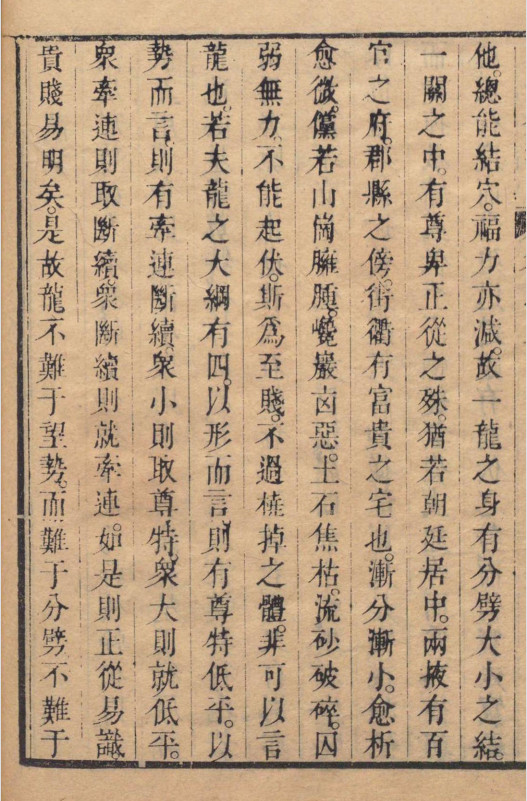 他。總能結穴。福力亦減。故一龍之身有分劈大小之結。
一關之中。有尊卑正從之殊。猶若朝廷居中。兩掖有百
官之府。郡縣之傍。街衢有富貴之宅也。漸分漸小。愈析
愈微。儻若山崗臃腫。巉巖凶惡。土石焦枯。流砂破碎。囚
弱無力。不能起伏。斯為至賤。不過橈掉之體。非可以言
龍也。若夫龍之大綱有四。以形而言。則有尊特低平。以
勢而言。則有牽連斷續。衆小則取尊特。衆大則就低平。
衆牽連則取斷續。衆斷續則就牽連。如是則正從易識。
貴賤易明矣。是故龍不難于望勢。而難于分劈。不難于